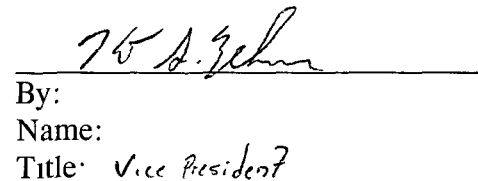 By:
Name:
Title: Vice President